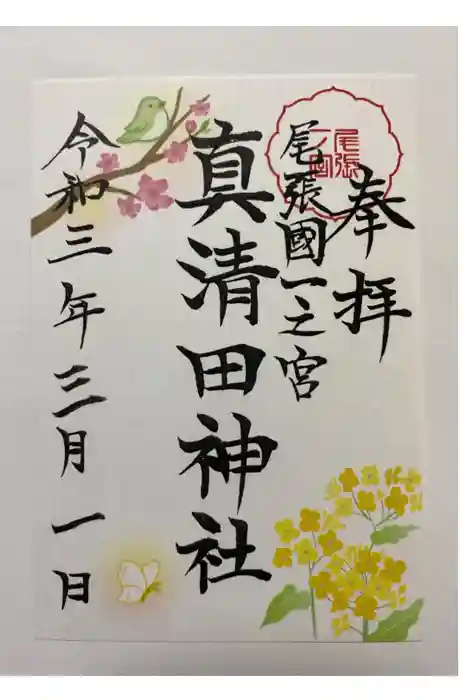 奉拝
尾張國一之宮
真清田神社
令和三年三月一日
尾張
一宮